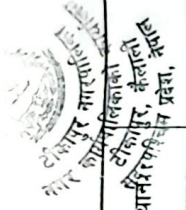 टीकापुर नगरपालिका
नगर कार्यपालिकाको
टीकापुर, कैलाली
सुदूरपश्चिम प्रदेश, नेपाल